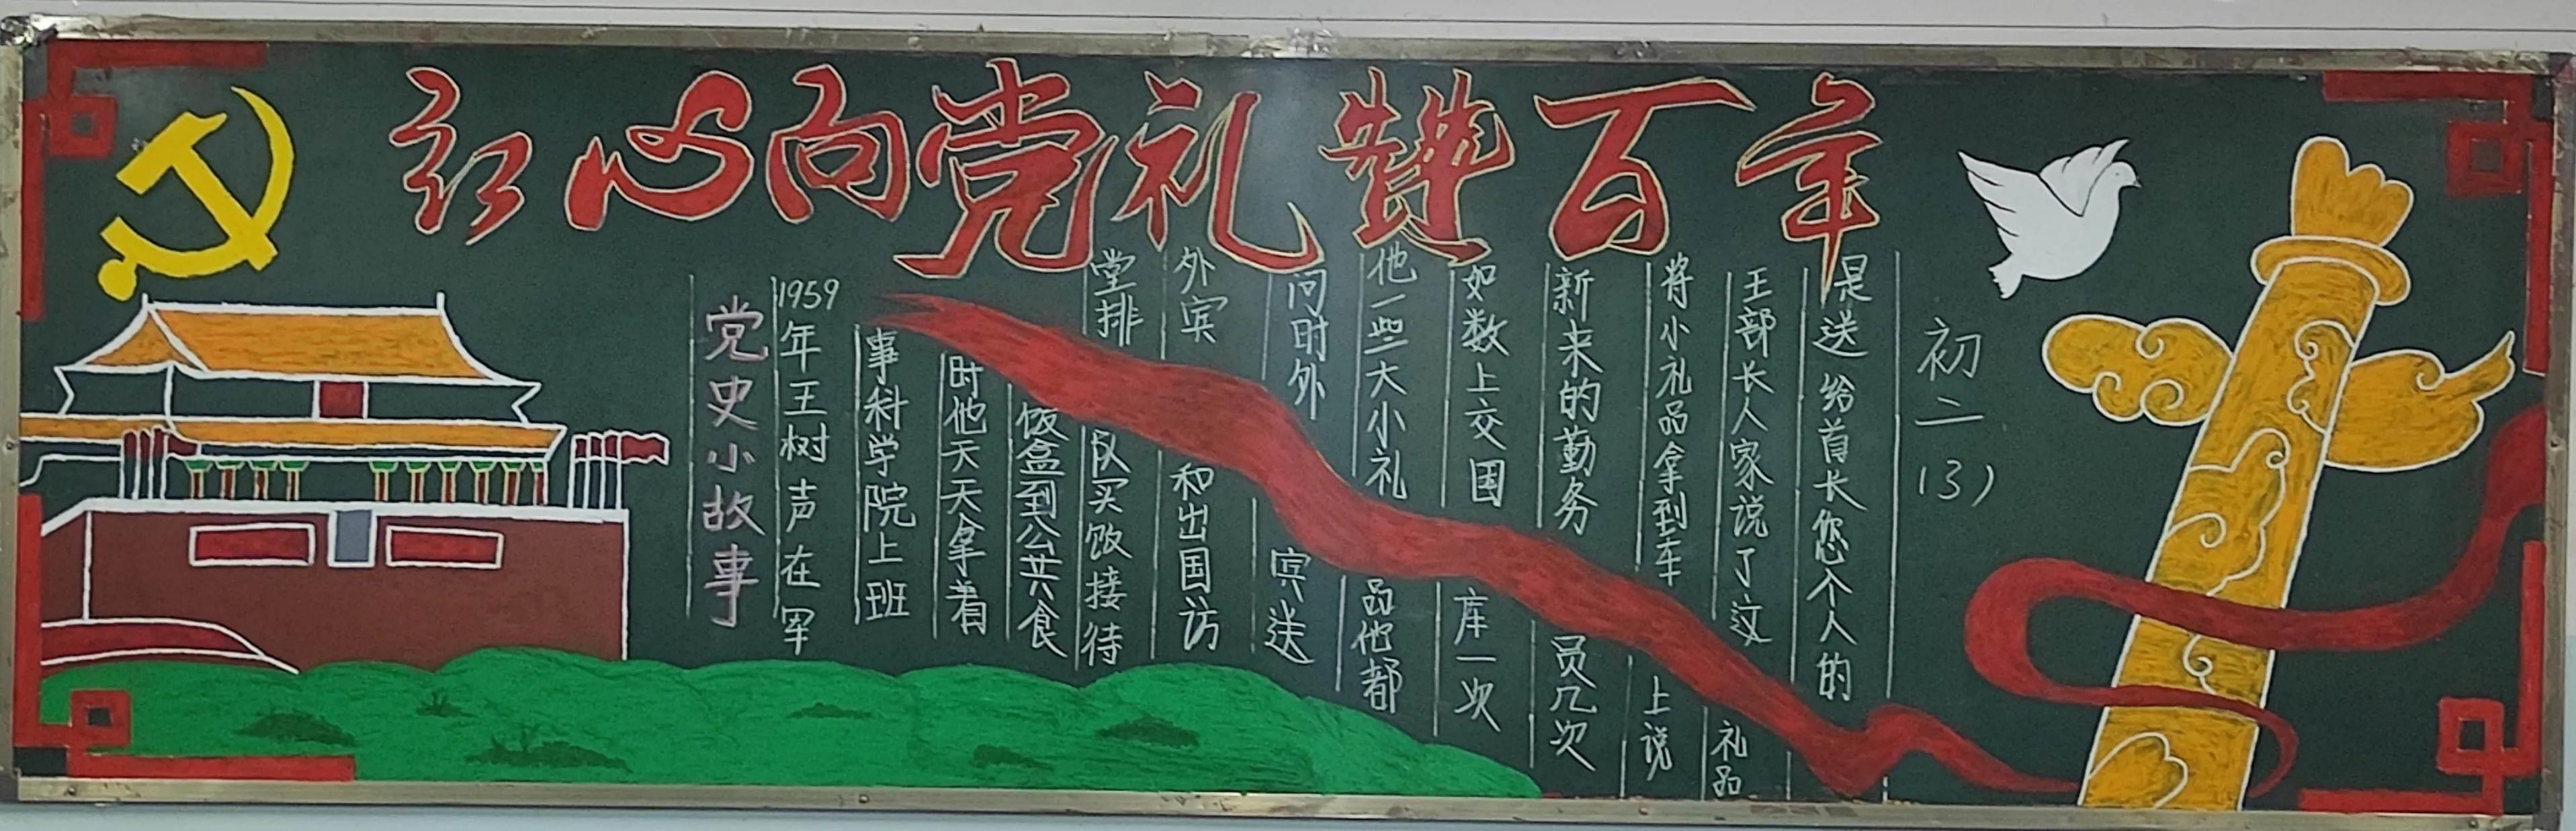 红心向党礼赞百年
党史小故事
1959年王树声在军
事科学院上班
时他天天拿着
饭盒到公共食
堂排队买饭接待
外宾和出国访
问时外宾送
他一些大小礼品他都
如数上交国库一次
新来的勤务员几次
将小礼品拿到车上说
王部长人家说了这礼品
是送给首长您个人的
初二(3)